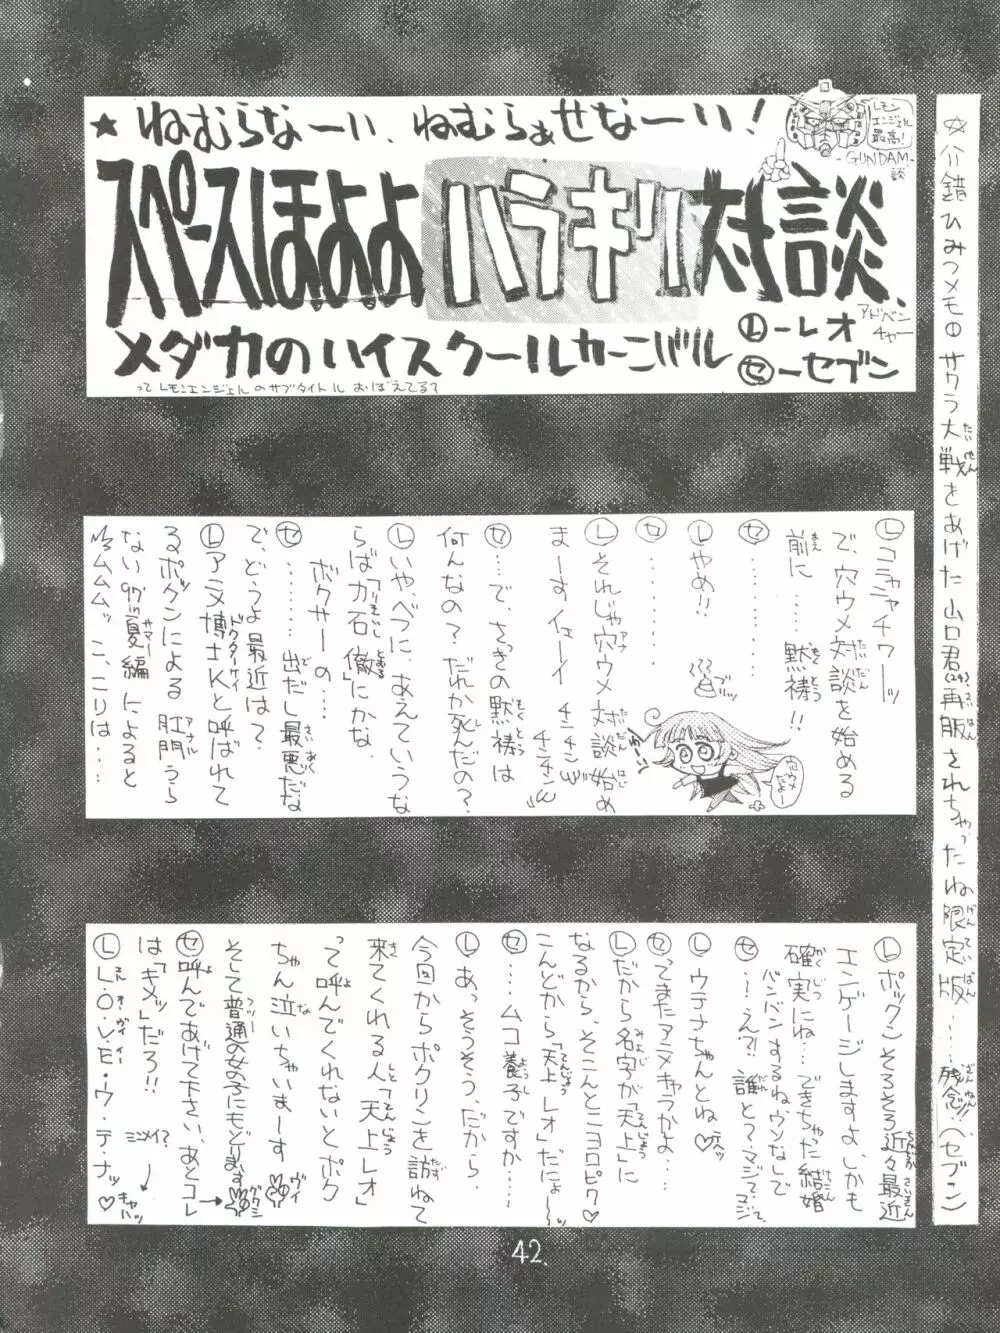 ★ねむらなーい、ねむらぁせなーい!
スペースほよよハラキリ対談、
メダカのハイスクールカーニバル
アドベンチャー
Ⓛ-レオ
セ-セブン
ってレモンエンジェルのサブタイトルおぼえてる?
レモン
エンジェル
最高!
-GUNDAM-
談
サクラ大戦をあげた山口君(24)再販されちゃったね限定版……残念!!(セブン)
Ⓛコニャニャチワーッ
で、穴ウメ対談を始める
前に……黙祷!!
セ…………
Ⓛやめ!!
ブリッ
セ…………
Ⓛそれじゃ穴ウメ対談始め
まーすイェーイ チンチン
チンチン
穴ウメだよー
セ……で、さっきの黙祷は
何んなの?だれか死んだの?
Ⓛいや、べつに、あえていうな
らば「力石徹」にかな
ボクサーの…
セ……出だし最悪だな
で、どうよ最近は?
Ⓛアニメ博士Kと呼ばれて
るポックンによる肛門うら
ない97in夏編によると
ムムムッこ、こりは…
Ⓛポックンそろそろ近々最近
エンゲージしますよ、しかも
確実にね…できちゃった結婚
バンバンするねウンなしで
セ……え?!誰と?マジで?マジで?
Ⓛウテナちゃんとね♡
セってまたアニメキャラかよ…
Ⓛだから名字が「天上」に
なるから、そこんとこヨロピク♡
こんどから「天上レオ」だにょ〜〜
セ……ムコ養子ですか……
Ⓛあっ、そうそう、だから
今回からポクリンを訪ねて
来てくれる人「天上レオ」
って呼んでくれないとポク
ちゃん泣いちゃいまーす
そして普通の女の子にもどります
ヴイ
セ呼んであげて下さい、あとコレ
は「キメッ」だろ!!
ミンメイ?
ⓁL・O・V・E・ウ・テ・ナッ♡
キャハッ
42.